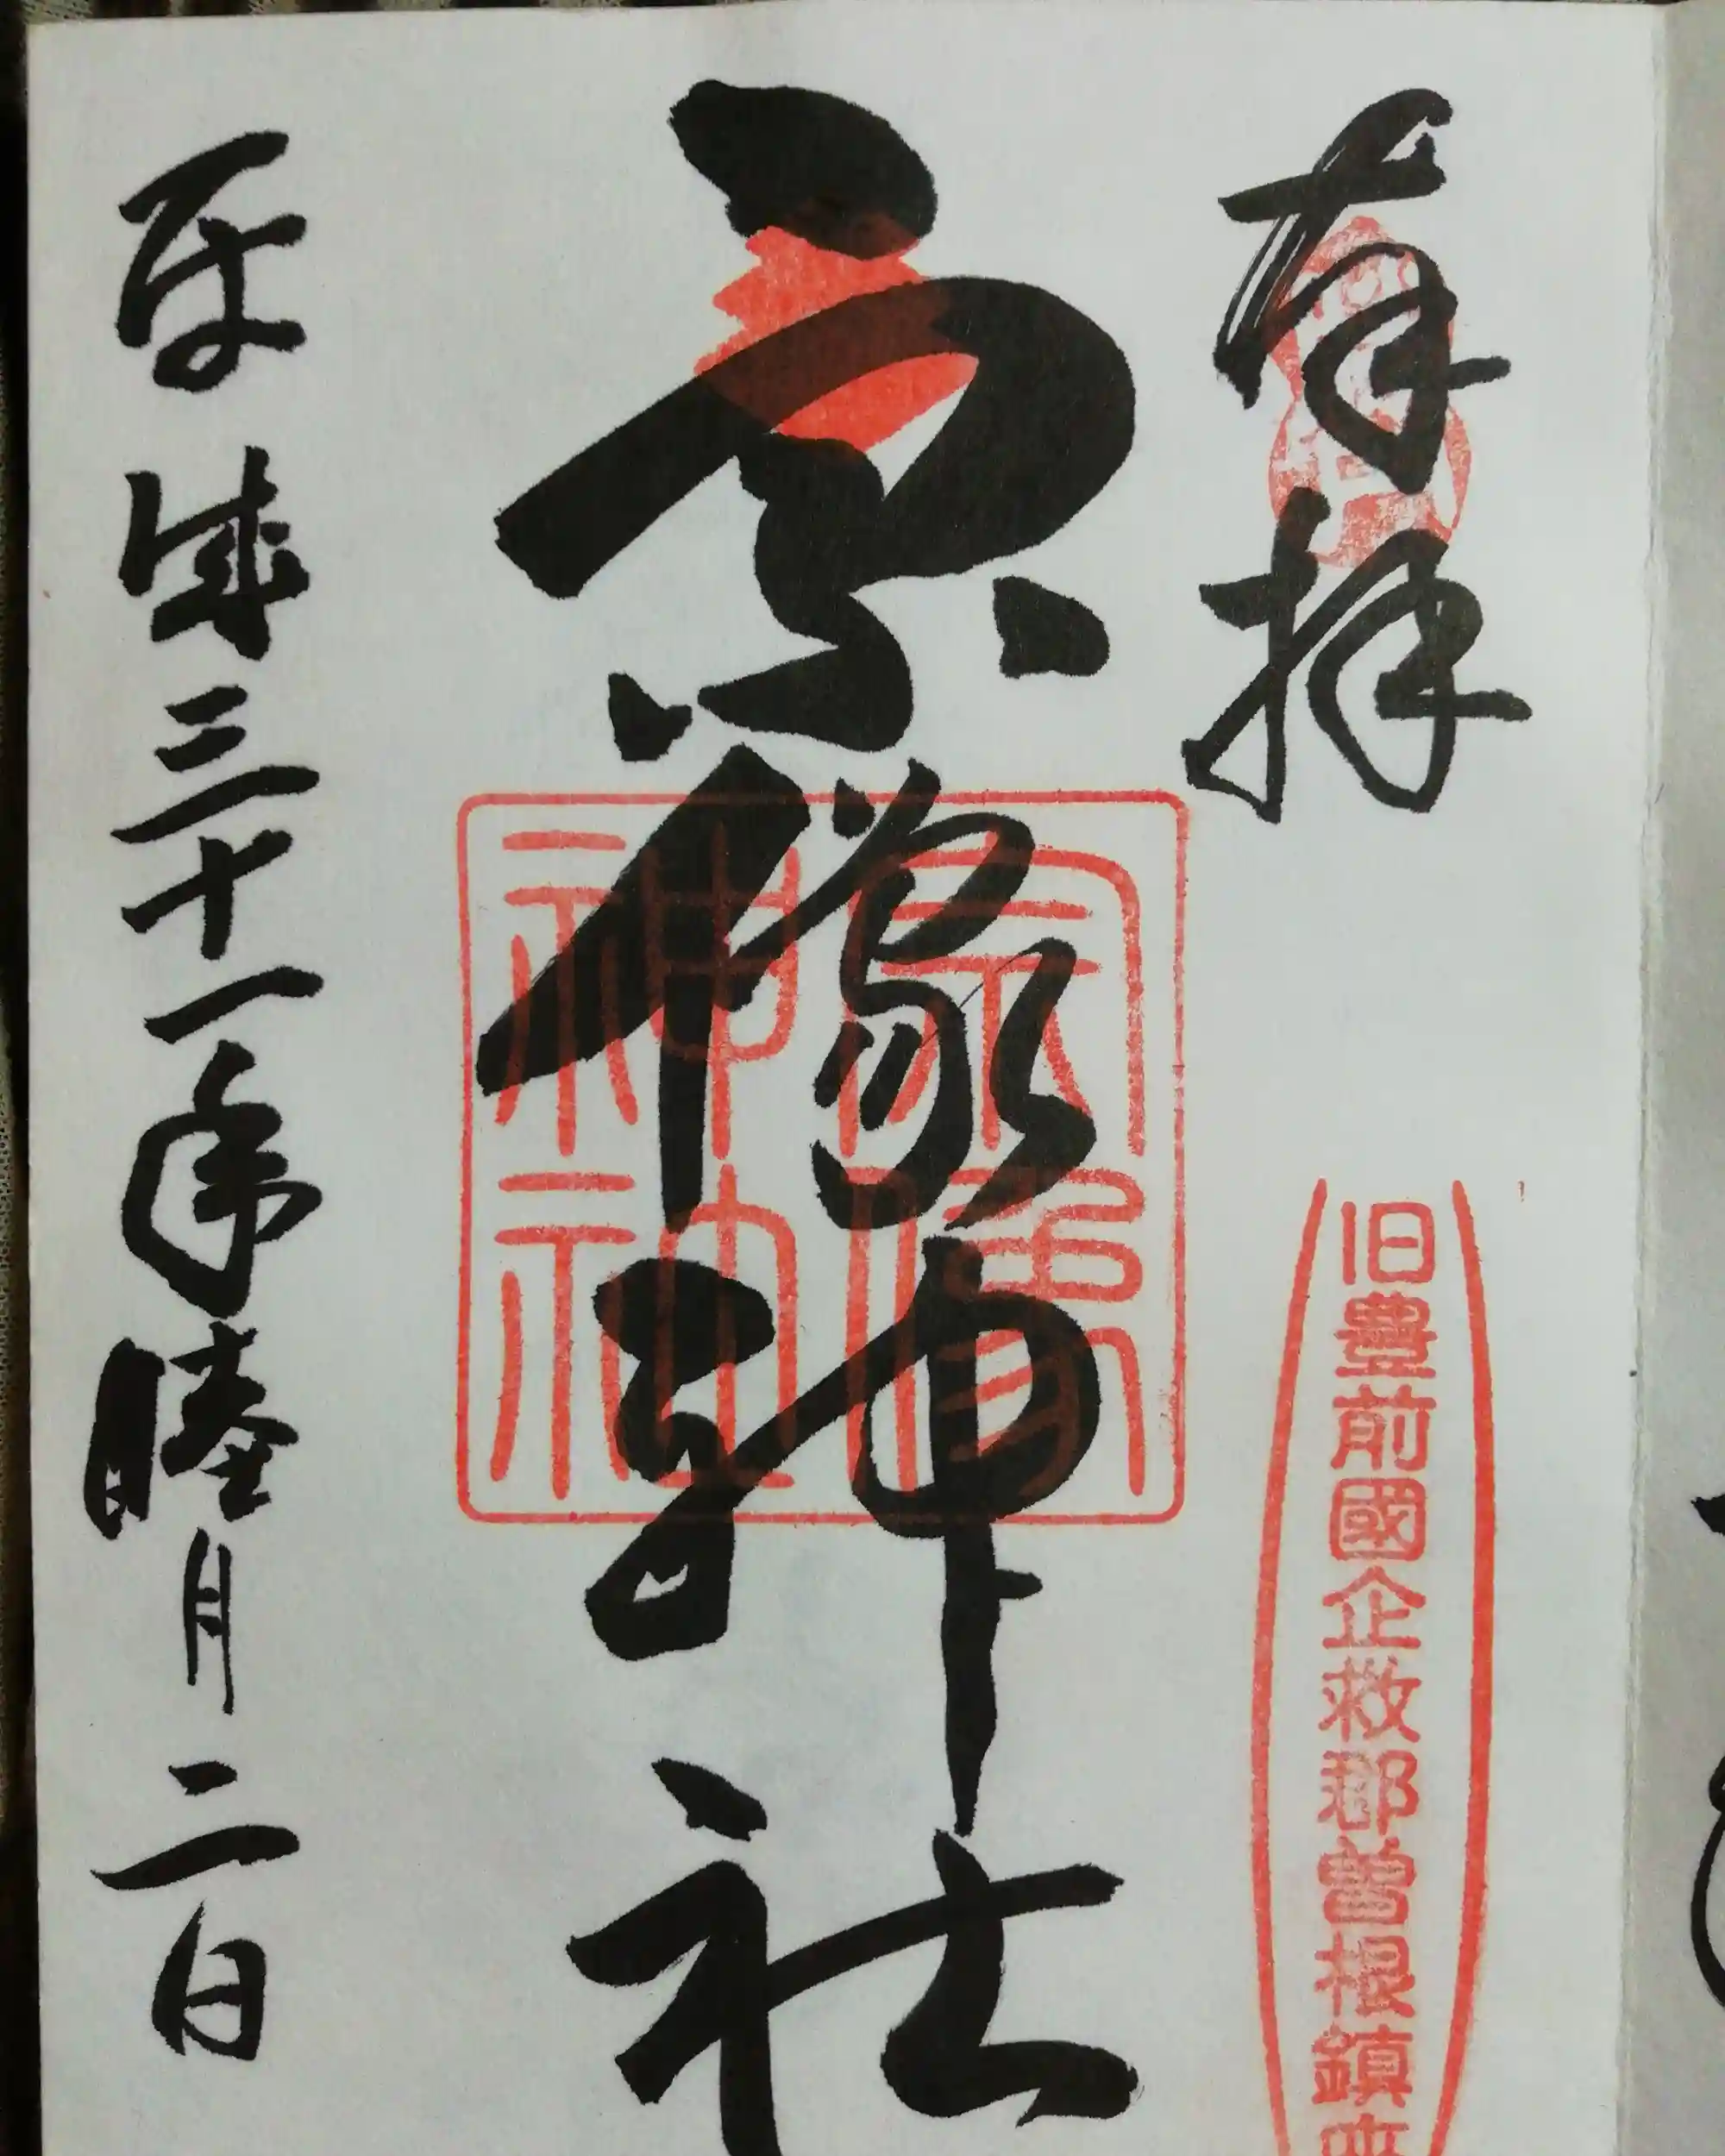 奉拝
旧豊前國企救郡曽根鎮座
宗像神社
宗像神社
平成三十一年睦月二日